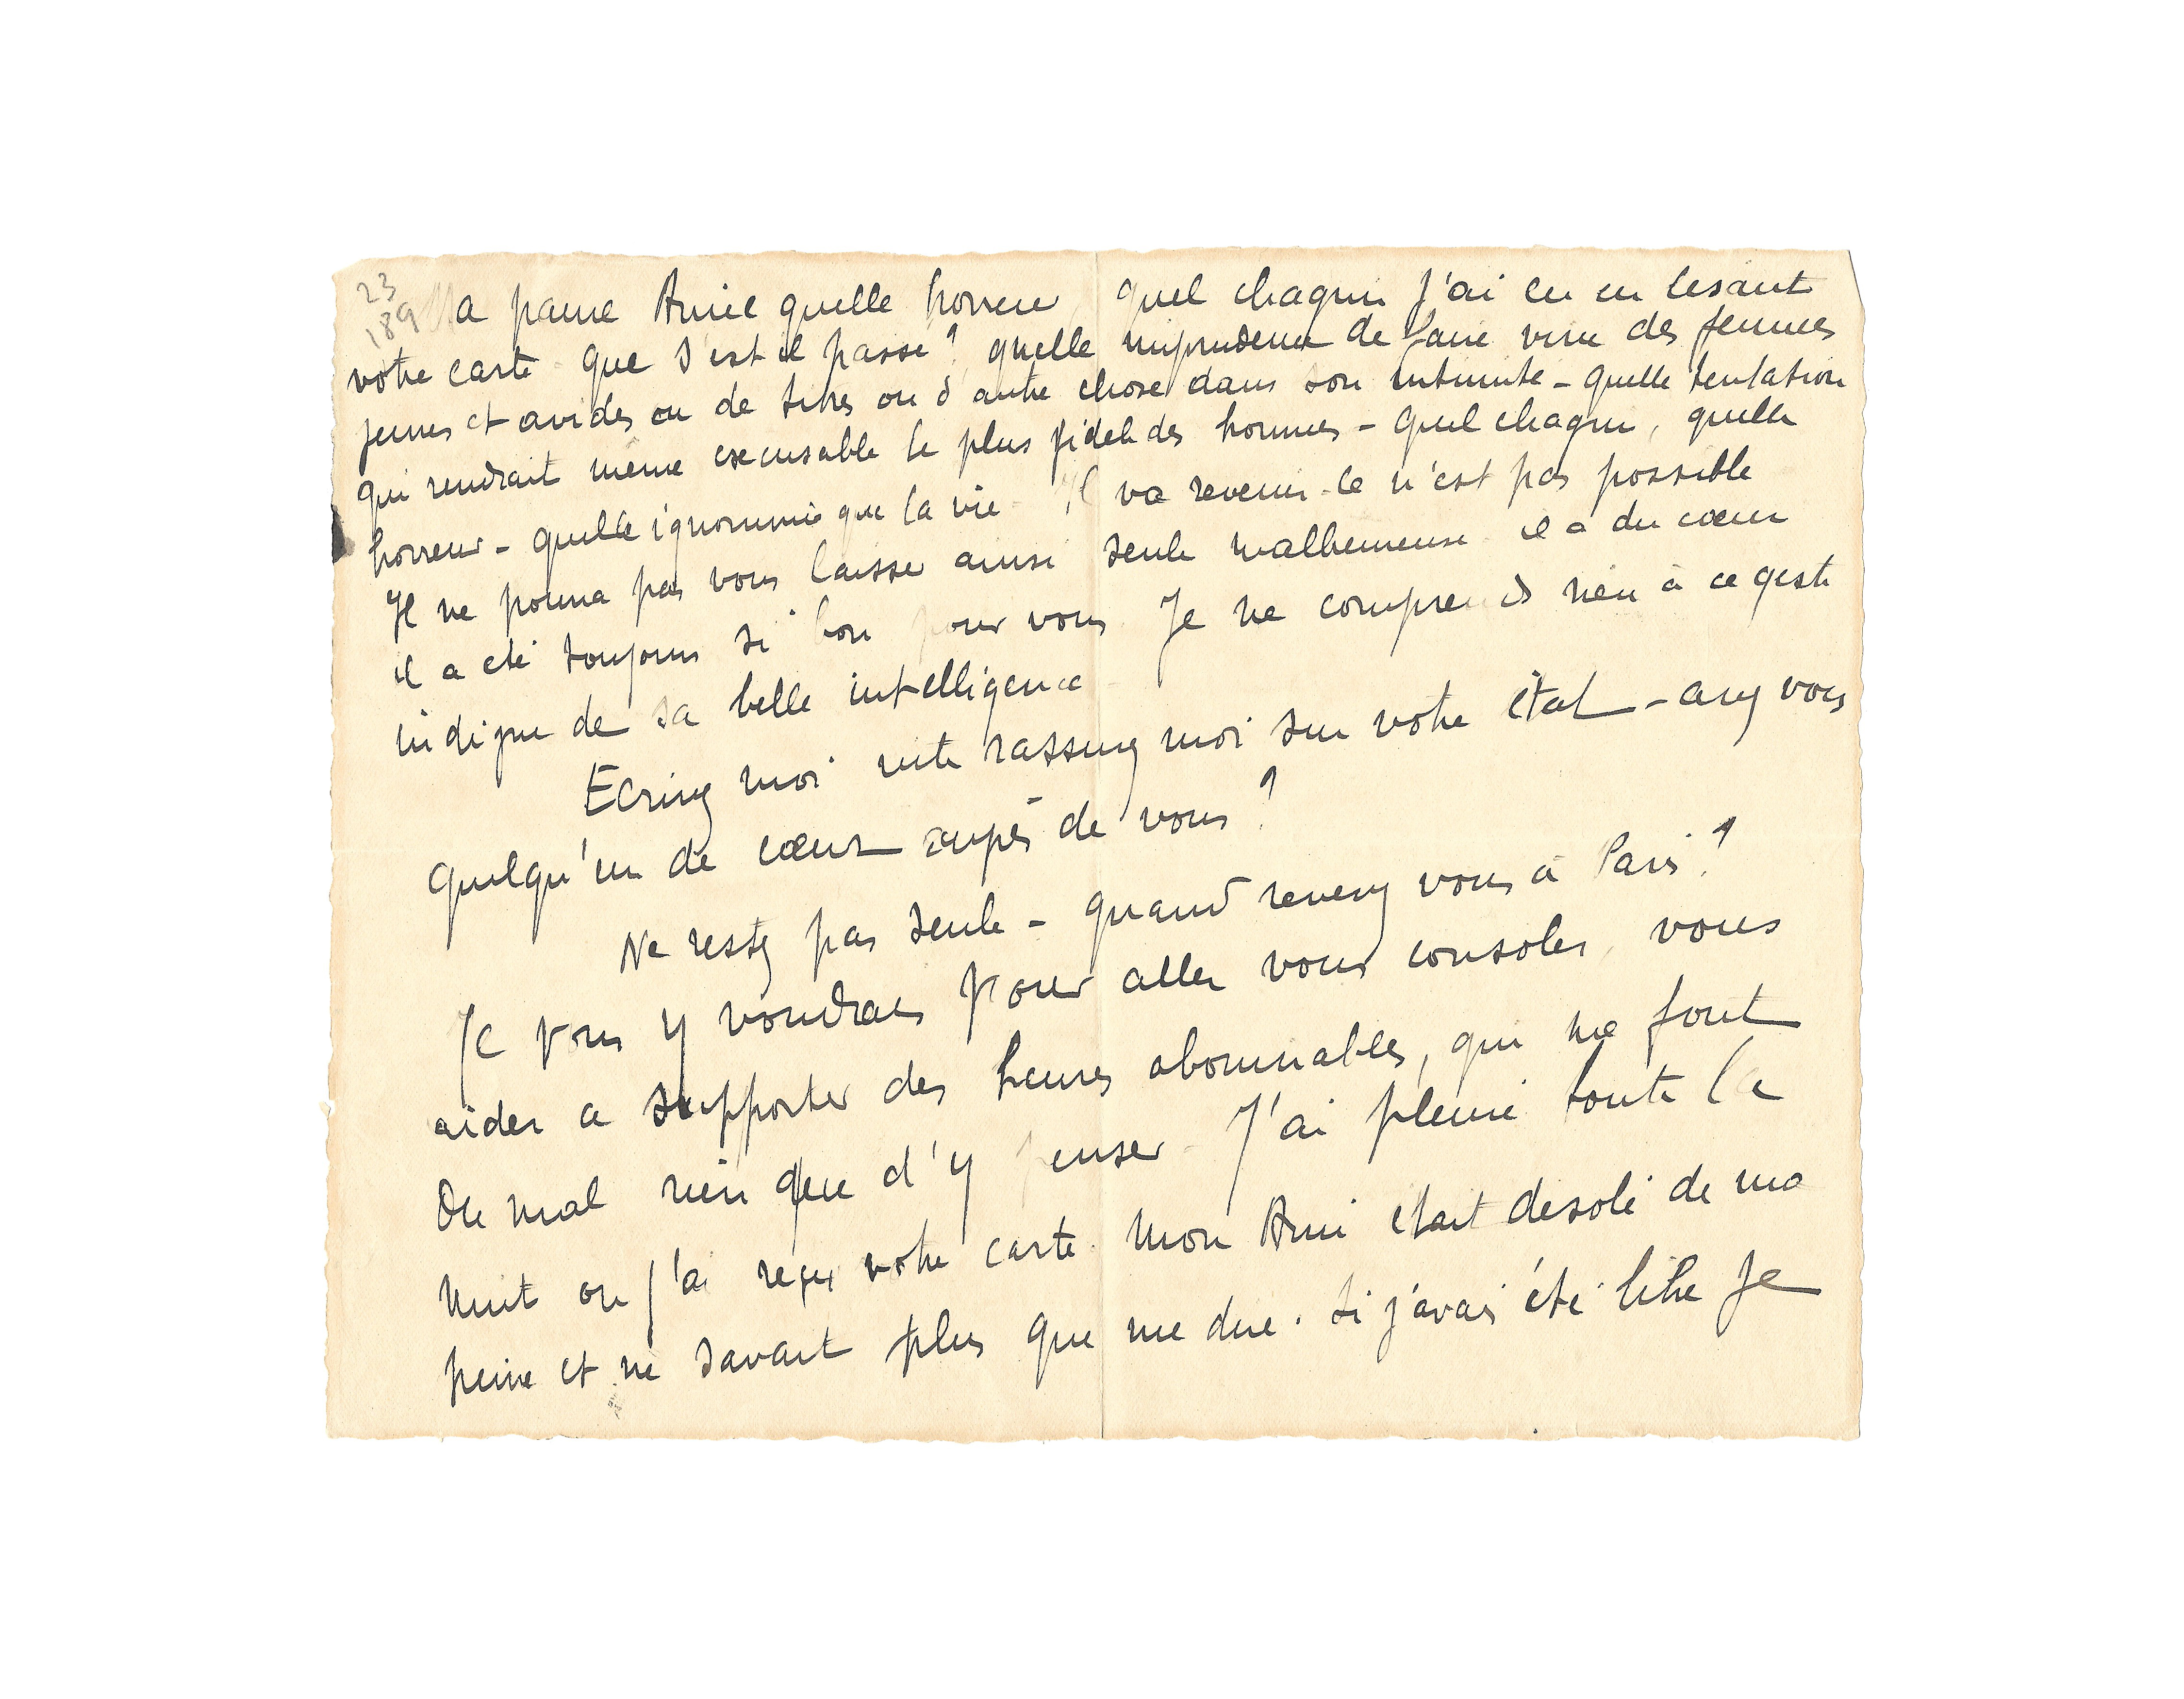 23
189
Ma pauvre Amie quelle horreur, quel chagrin j'ai eu en lisant
votre carte - que s'est il passé ? quelle imprudence de faire vivre des femmes
jeunes et avides ou de titres ou d'autre chose dans son intimité - quelle tentation
qui rendrait même excusable le plus fidele des hommes - quel chagrin, quelle
horreur - quelle ignominie que la vie - Il va revenir - ce n'est pas possible
Il ne pourra pas vous laisser ainsi seule malheureuse - il a du cœur
il a été toujours si bon pour vous. Je ne comprends rien à ce geste
indigne de sa belle intelligence -
Ecrivez moi vite rassurez moi sur votre état - avez vous
quelqu'un de cœur auprès de vous ?
Ne restez pas seule - quand revenez vous à Paris ?
Je vous y voudrais pour aller vous consoler, vous
aider a supporter des heures abominables, qui me font
du mal rien que d'y penser - J'ai pleuré toute la
nuit ou j'ai reçu votre carte. Mon Ami était désolé de ma
peine et ne savait plus que me dire. si j'avais été libre je